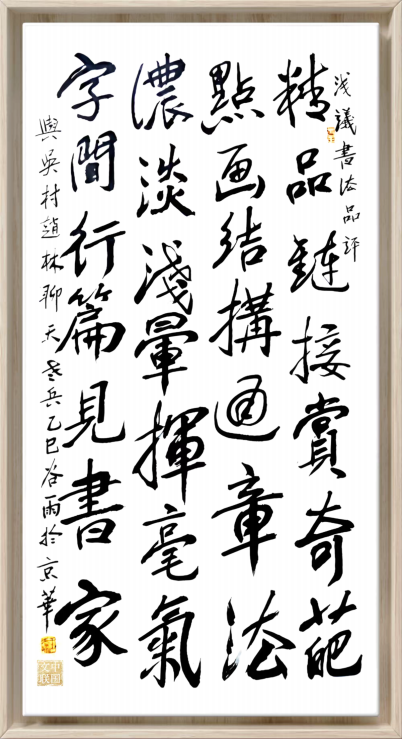 浅議書法品評
精品鏈接賞奇葩
點画結構通章法
濃淡淺暈揮毫氣
字間行篇見書家
與吳村趙林聊天老兵乙巳谷雨於京華
中国文联